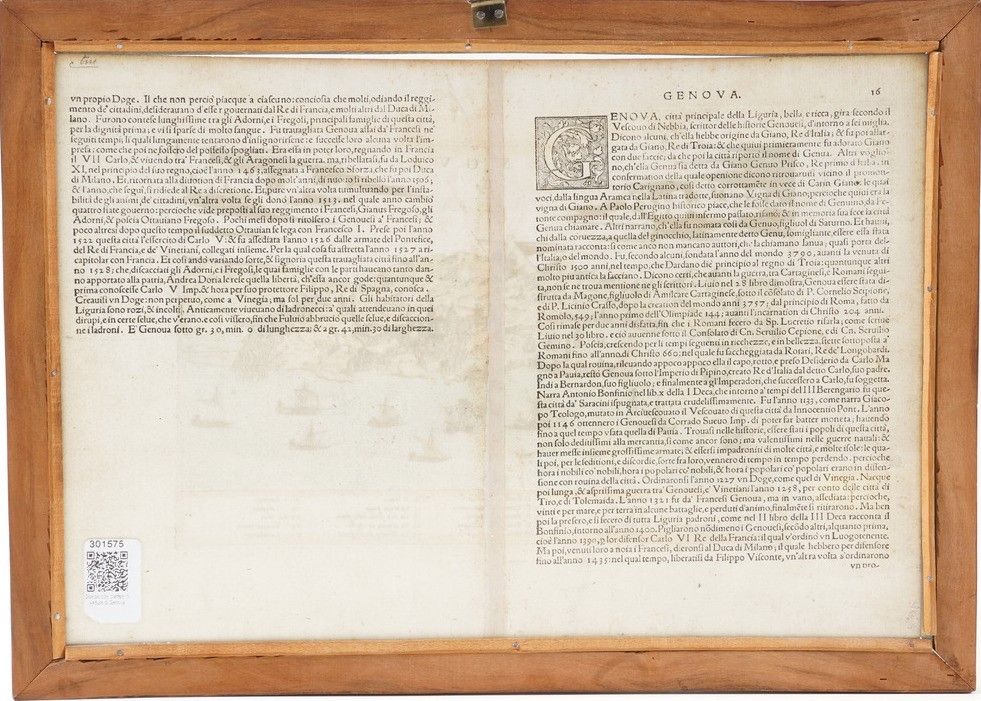 vn propio Doge. Il che non perciò piacque a ciascuno: conciosia che molti, odiando il reggi-
mento de' cittadini, desiderauano d'esser gouernati dal Re di Francia, e molti altri dal Duca di Mi-
lano. Furono contese lunghissime tra gli Adorni, e i Fregosi, principali famiglie di questa città,
per la dignità prima; e vi si sparse di molto sangue. Fu trauagliata Genoua assai da' Francesi ne'
seguiti tempi, li quali lungamente tentarono d'insignorirsene: e successe loro alcuna volta l'im-
presa: come che poi ne fossero del possesso spogliati. Era essa in poter loro, regnando in Francia
il VII Carlo, & viuendo tra' Francesi, & gli Aragonesi la guerra. ma, ribellatasi, fu da Lodouico
XI, nel principio del suo regno, cioè l'anno 1463, assegnata a Francesco Sforza, che fu poi Duca
di Milano. Et, ritornata alla diuotion di Francia dopo molt'anni, di nuouo si ribellò l'anno 1506;
& l'anno, che seguì, si rendè al Re a discretione. Et, pure vn'altra volta tumultuando per l'insta-
bilità de gli animi de' cittadini, vn'altra volta se gli donò l'anno 1513. nel quale anno cambiò
quattro fiate gouerno: percioche vide preposti al suo reggimento i Francesi, Gianus Fregoso, gli
Adorni, & poscia Ottauiano Fregoso. Pochi mesi dopo si ritolsero i Genouesi a' Francesi: &
poco altresì dopo questo tempo il suddetto Ottauian fe lega con Francesco I. Prese poi l'anno
1522 questa città l'essercito di Carlo V: & fu assediata l'anno 1526 dalle armate del Pontefice,
del Re di Francia, e de' Vinetiani, collegati insieme. Per la qual cosa fu astretta l'anno 1527 a ri-
capitolar con Francia. Et così andò variando sorte, & signoria questa trauagliata città fino all'an-
no 1528: che, discacciati gli Adorni, e i Fregosi, le quai famiglie con le parti haueano tanto dan-
no apportato alla patria, Andrea Doria le rese quella libertà, ch'essa ancor gode: quantunque &
prima conoscesse Carlo V Imp. & hora per suo protettore Filippo, Re di Spagna, conosca.
Creausi vn Doge: non perpetuo, come a Vinegia; ma sol per due anni. Gli habitatori della
Liguria sono rozi, & incolti. Anticamente viueuano di ladronecci: a' quali attendeuano in quei
dirupi, e in certe selue, che v'erano. e così vissero, fin che Fuluio abbruciò quelle selue, e discaccion-
ne i ladroni. E' Genoua sotto gr. 30, min. 0 di lunghezza; & a gr. 42, min. 30 di larghezza.
301575
GENOVA.
16
GENOVA, città principale della Liguria, bella, e ricca, gira secondo il
Vescouo di Nebbia, scrittor delle historie Genouesi, d'intorno a sei miglia.
Dicono alcuni, ch'ella hebbe origine da Giano, Re d'Italia; & fu poi allar-
gata da Giano, Re di Troia: & che quiui primieramente fu adorato Giano
con due faccie; da che poi la città riportò il nome di Genua. Altri voglio-
no, ch'ella Genua sia detta da Giano Genio Prisco, Re primo d'Italia. in
confermation della quale openione dicono ritrouaruisi vicino il promon-
torio Carignano, così detto corrottamēte in vece di Carin Giano: le quai
voci, dalla lingua Aramea nella Latina tradotte, suonano Vigna di Giano: percioche quiui era la
vigna di Giano. A Paolo Perugino historico piace, che le fosse dato il nome da Genuino, da Fe-
tonte compagno: il quale, di Egitto quiui infermo passato, risanò: & in memoria sua fece la città
Genua chiamare. Altri narrano, ch'ella fu nomata così da Genuo, figliuol di Saturno. Et hauui,
chi dalla coruezza, a quella del ginocchio, latinamente detto Genu, somigliante, essere essa stata
nominata racconti: sì come anco non mancano autori, che la chiamano Ianua; quasi porta del-
l'Italia, o del mondo. Fu, secondo alcuni, fondata l'anno del mondo 3790, auanti la venuta di
Christo 1500 anni, nel tempo, che Dardano diè principio al regno di Troia: quantunque altri
molto più antica la facciano. Dicono certi, che auanti la guerra, tra Cartaginesi, e Romani segui-
ta, non se ne troua mentione ne gli scrittori. Liuio nel 28 libro dimostra, Genoua essere stata di-
strutta da Magone, figliuolo di Amilcare Cartaginese, sotto il cōsolato di P. Cornelio Scipione,
e di P. Licinio Crasso, dopo la creation del mondo anni 3757; dal principio di Roma, fatto da
Romolo, 549; l'anno primo dell'Olimpiade 144; auanti l'incarnation di Christo 204 anni.
Così rimase per due anni disfatta, fin che i Romani fecero da Sp. Lucretio rifarla; come scriue
Liuio nel 30 libro. e ciò auuenne sotto il Consolato di Cn. Seruilio Cepione, e di Cn. Seruilio
Gemino. Poscia, crescendo per li tempi seguenti in ricchezze, e in bellezza, stette sottoposta a'
Romani fino all'anno, di Christo 660: nel quale fu saccheggiata da Rotari, Re de' Longobardi.
Dopo la qual rouina, rileuando appoco appoco ella il capo, rotto, e preso Desiderio da Carlo Ma
gno a Pauia, restò Genoua sotto l'Imperio di Pipino, creato Re d'Italia dal detto Carlo, suo padre.
Indi a Bernardon, suo figliuolo; e finalmente a gl'Imperadori, che successero a Carlo, fu soggetta.
Narra Antonio Bonfinio nel lib. x della I Deca, che intorno a' tempi del III Berengario fu que-
sta città da' Saracini ispugnata, e trattata crudelissimamente. Fu l'anno 1133, come narra Giaco-
po Teologo, mutato in Arciuescouato il Vescouato di questa città da Innocentio Pont. L'anno
poi 1146 ottennero i Genouesi da Corrado Sueuo Imp. di poter far batter moneta; hauendo
fino a quel tempo vsata quella di Pauia. Trouasi nelle historie, essere stati i popoli di questa città,
non solo deditissimi alla mercantia, sì come ancor sono; ma valentissimi nelle guerre nauali: &
hauer messe insieme grossissime armate; & essersi impadroniti di molte città, e molte isole: le qua-
li poi, per le seditioni, e discordie, sorte fra loro, vennero di tempo in tempo perdendo. percioche
hora i nobili co' nobili, hora i popolari co' nobili, & hora i popolari co' popolari erano in dissen-
sione con rouina della città. Ordinaronsi l'anno 1227 vn Doge, come quel di Vinegia. Nacque
poi lunga, & asprissima guerra tra' Genouesi, e' Vinetiani l'anno 1258, per conto delle città di
Tiro, e di Tolemaida. L'anno 1321 fu da' Francesi Genoua, ma in vano, assediata: percioche,
vinti e per mare, e per terra in alcune battaglie, e perduti d'animo, finalmēte si ritirarono. Ma ben
poi la presero, e si fecero di tutta Liguria padroni, come nel II libro della III Deca racconta il
Bonfinio, intorno all'anno 1400. Pigliarono nōdimeno i Genouesi, secōdo altri, alquanto prima,
cioè l'anno 1390, p lor difensor Carlo VI Re della Francia: il qual v'ordinò vn Luogotenente.
Ma poi, venuti loro a noia i Francesi, dieronsi al Duca di Milano; il quale hebbero per difensore
fino all'anno 1435: nel qual tempo, liberatisi da Filippo Visconte, vn'altra volta s'ordinarono
vn pro-